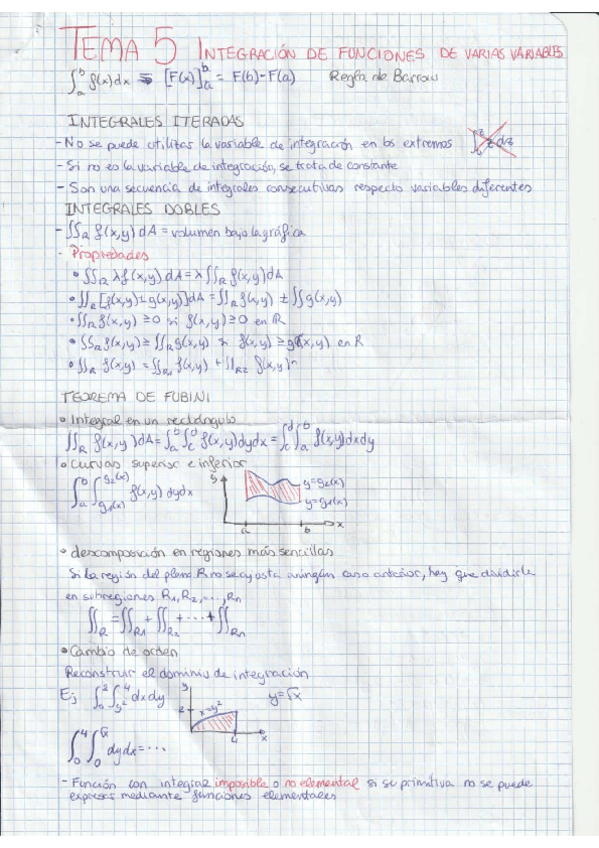 TEMA 5 INTEGRACIÓN DE FUNCIONES DE VARIAS VARIABLES
∫_a^b f(x)dx = [F(x)]_a^b = F(b)-F(a) Regla de Barrow
INTEGRALES ITERADAS
- No se puede utilizar la variable de integración en los extremos ∫_0^z z dz
- Si no es la variable de integración, se trata de constante
- Son una secuencia de integrales consecutivas respecto variables diferentes
INTEGRALES DOBLES
- ∬_R f(x,y) dA = volumen bajo la gráfica
- Propiedades
• ∬_R λ f(x,y) dA = λ ∬_R f(x,y) dA
• ∬_R [f(x,y) ± g(x,y)] dA = ∬_R f(x,y) ± ∬ g(x,y)
• ∬_R f(x,y) ≥ 0 si f(x,y) ≥ 0 en R
• ∬_R f(x,y) ≥ ∬_R g(x,y) si f(x,y) ≥ g(x,y) en R
• ∬_R f(x,y) = ∬_R1 f(x,y) + ∬_R2 f(x,y)
TEOREMA DE FUBINI
• Integral en un rectángulo
∬_R f(x,y) dA = ∫_a^b ∫_c^d f(x,y) dy dx = ∫_c^d ∫_a^b f(x,y) dx dy
• Curvas superior e inferior
∫_a^b ∫_{g₁(x)}^{g₂(x)} f(x,y) dy dx
y
y=g₂(x)
y=g₁(x)
a b x
• descomposición en regiones más sencillas
Si la región del plano R no se ajusta a ningún caso anterior, hay que dividirla
en subregiones R₁, R₂, ..., Rn
∬_R = ∬_R1 + ∬_R2 + ... + ∬_Rn
• Cambio de orden
Reconstruir el dominio de integración
Ej ∫_0^2 ∫_{y²}^4 dx dy
y
2 x=y²
4 x
y=√x
∫_0^4 ∫_0^{√x} dy dx = ...
- Función con integral imposible o no elemental si su primitiva no se puede
expresar mediante funciones elementales